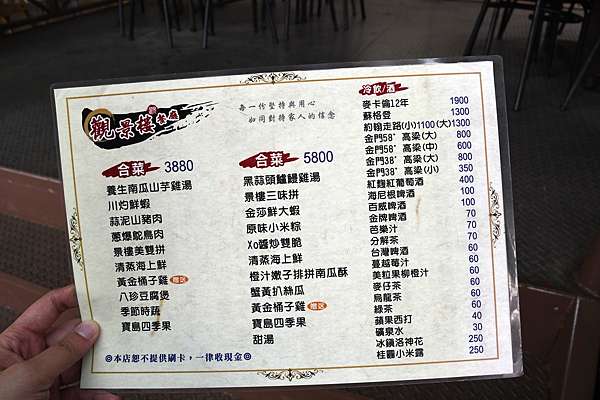 觀景樓 餐廳
每一份堅持與用心
如同對待家人的信念
合菜 3880
養生南瓜山芋雞湯
川灼鮮蝦
蒜泥山豬肉
蔥爆鴕鳥肉
景樓美雙拼
清蒸海上鮮
黃金桶子雞 贈送
八珍豆腐煲
季節時蔬
寶島四季果
合菜 5800
黑蒜頭鱸鰻雞湯
景樓三味拼
金莎鮮大蝦
原味小米粽
Xo醬炒雙脆
清蒸海上鮮
橙汁嫩子排拼南瓜酥
蟹黃扒絲瓜
黃金桶子雞 贈送
寶島四季果
甜湯
冷飲/酒
麥卡倫12年 1900
蘇格登 1300
約翰走路(小)1100(大)1300
金門58°高粱(大) 800
金門58°高粱(中) 600
金門38°高粱(大) 800
金門38°高粱(小) 350
紅麴紅葡萄酒 400
海尼根啤酒 100
百威啤酒 70
金牌啤酒 70
芭樂汁 70
分解茶 60
台灣啤酒 60
蔓越莓汁 60
美粒果柳橙汁 60
麥仔茶 60
烏龍茶 60
綠茶 60
蘋果西打 40
礦泉水 30
冰鎮洛神花 250
桂圓小米露 250
◎本店恕不提供刷卡，一律收現金◎